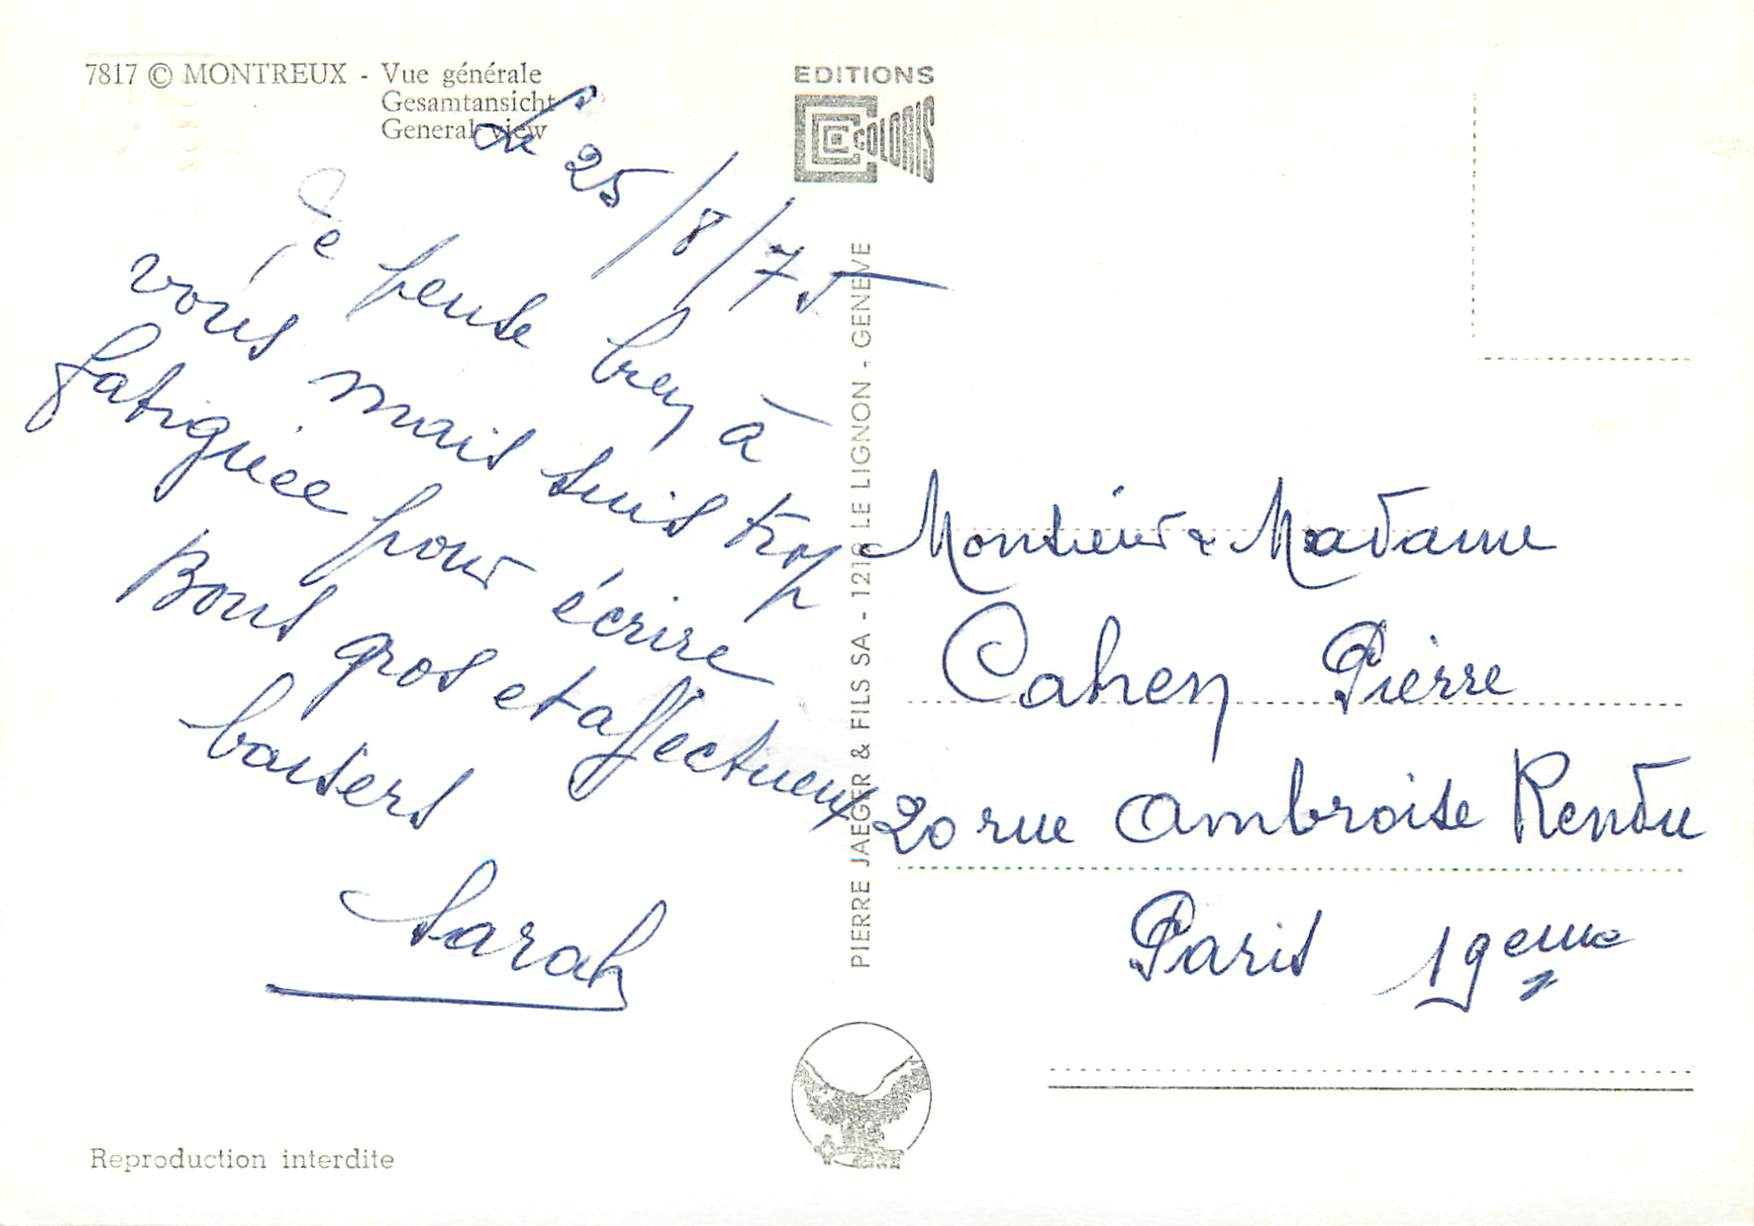 7817 © MONTREUX - Vue générale
Gesamtansicht
General view
Le 25/8/75
Je pense bien à
vous mais suis trop
fatiguée pour écrire
Bons gros et affectueux
baisers
Sarah
Reproduction interdite
EDITIONS
COLORIS
PIERRE JAEGER & FILS SA - 1219 LE LIGNON - GENEVE
Monsieur & Madame
Cahen Pierre
20 rue Ambroise Rendu
Paris 19eme